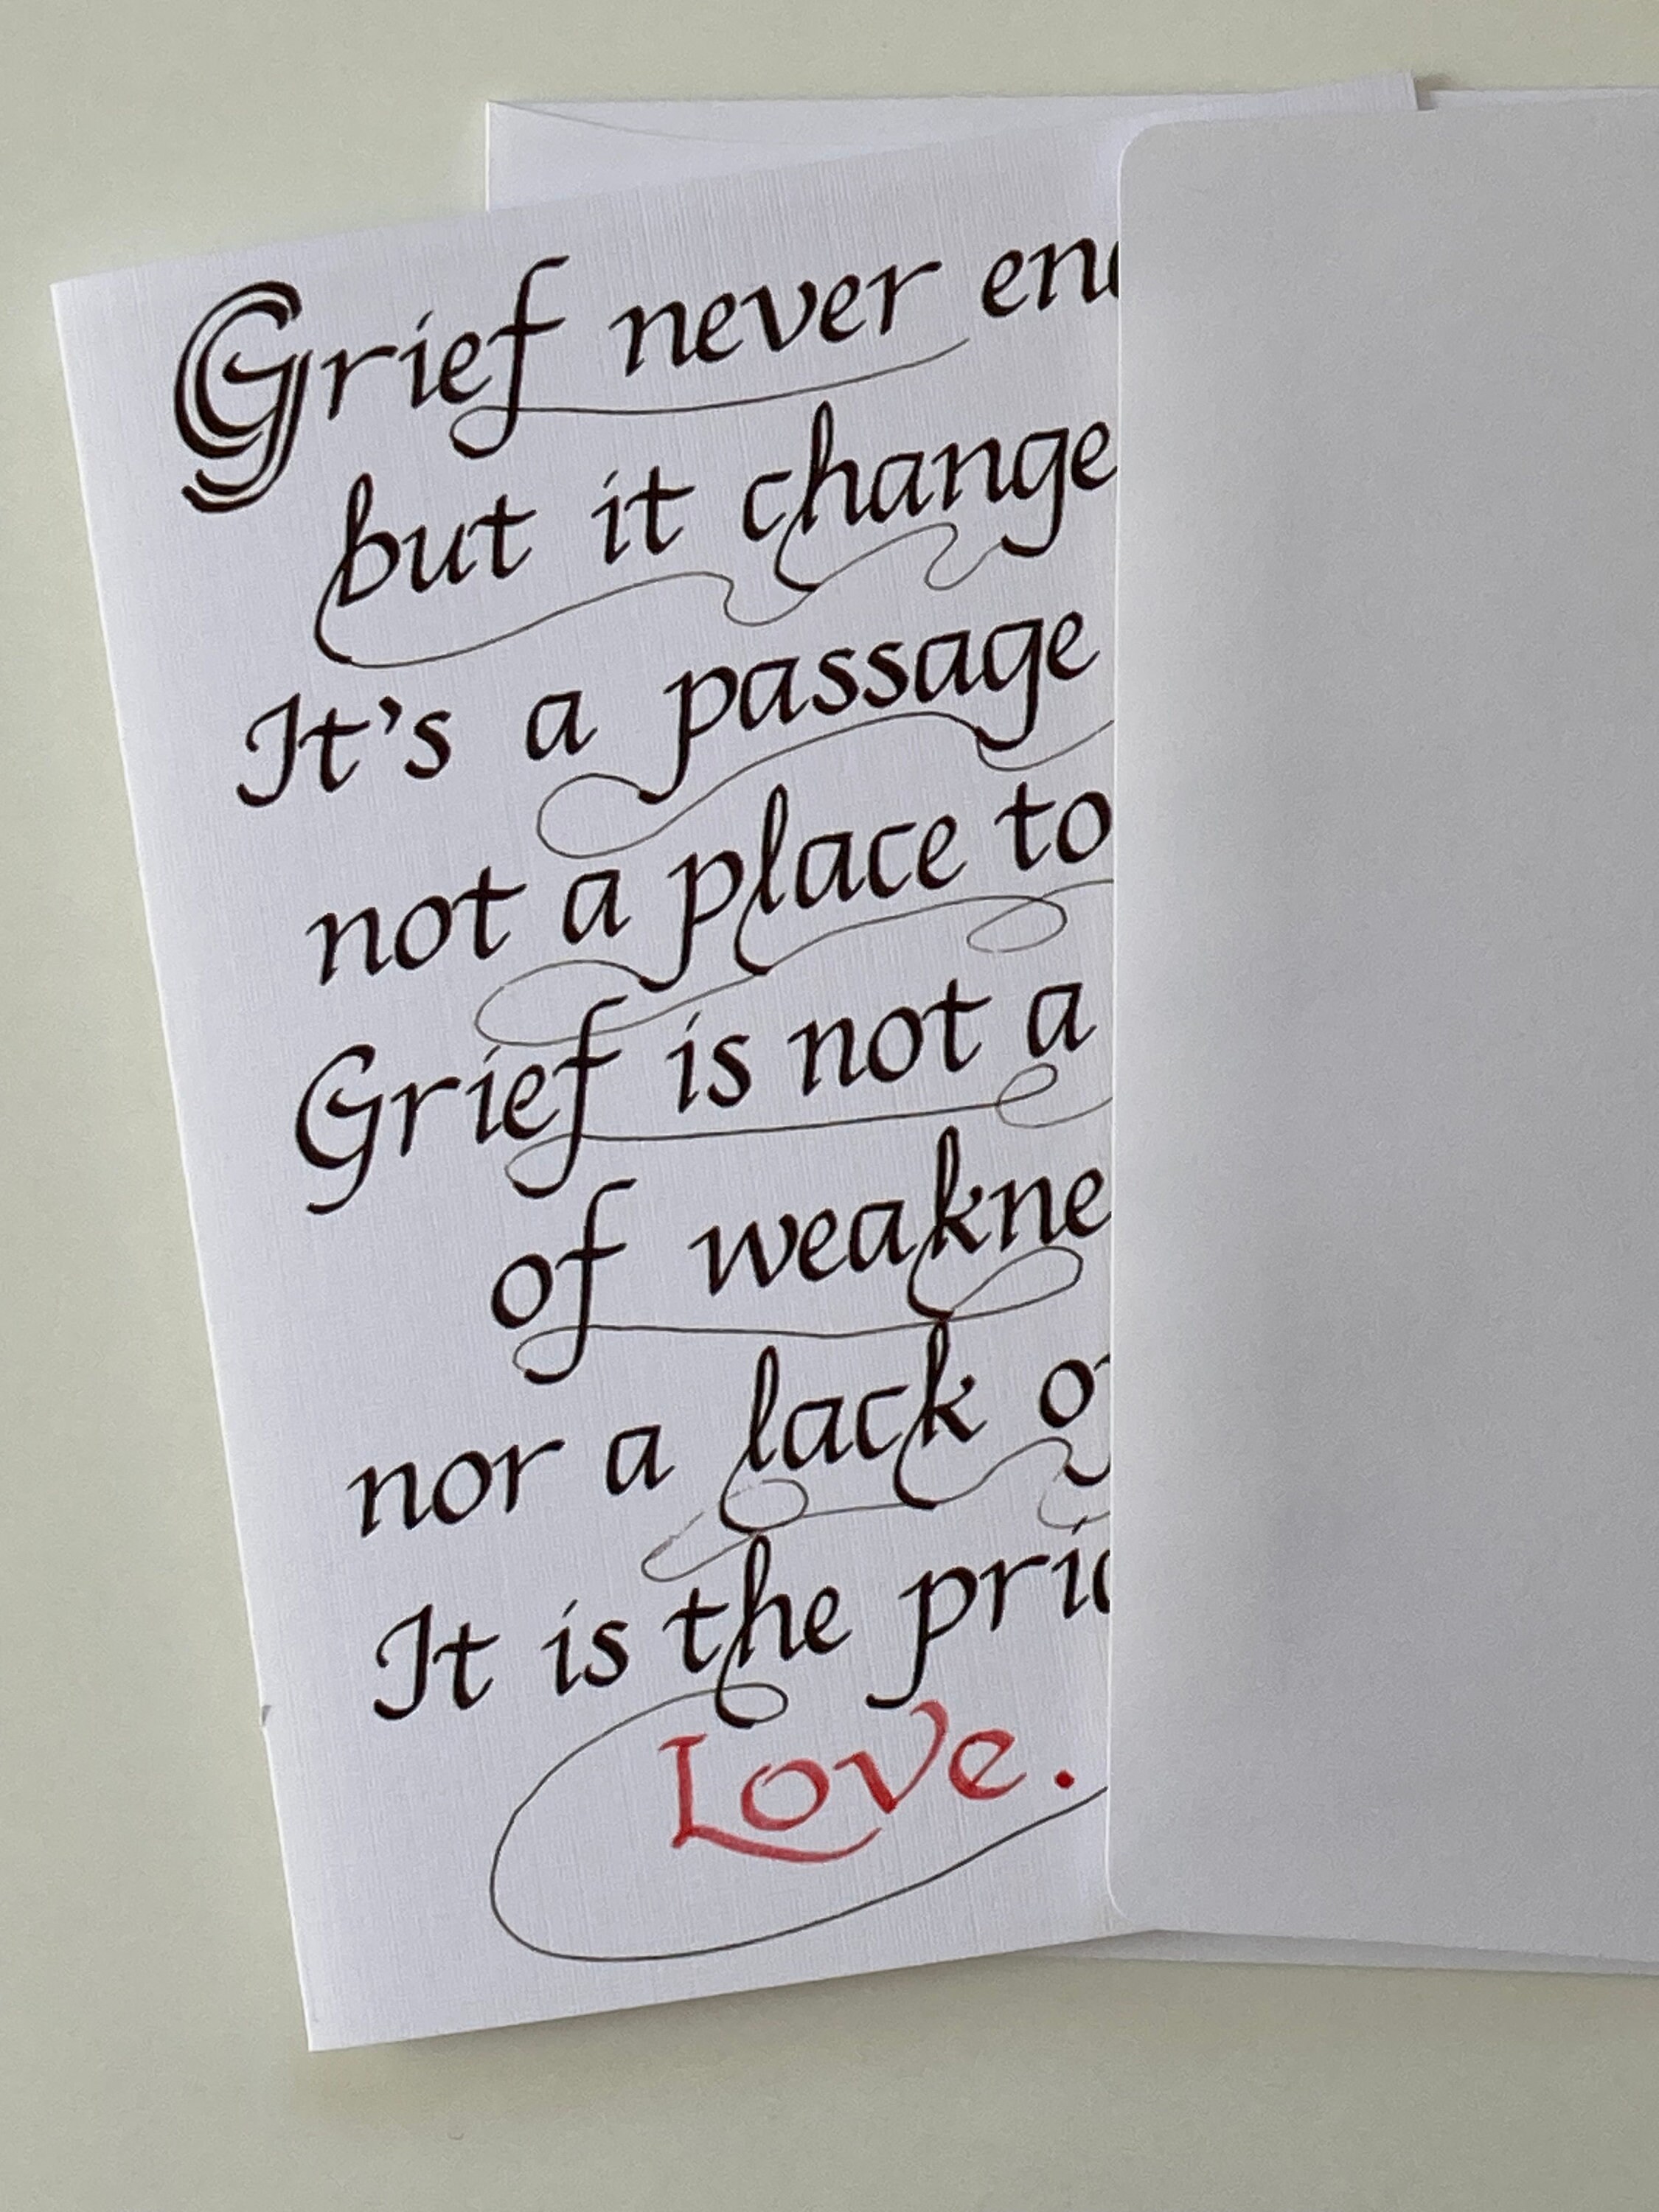 Grief never en
but it change
It's a passage
not a place to
Grief is not a
of weakne
nor a lack o
It is the pri
Love.